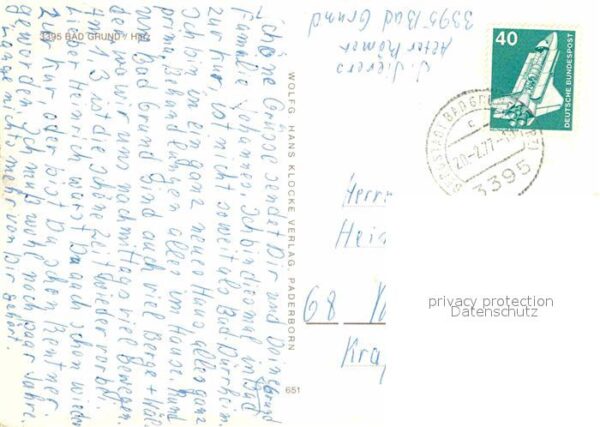 3395 BAD GRUND / Harz
Lieber Heinrich warst Du auch schon wieder
zur Kur oder bist Du schon Rentner
geworden. Ich muß wohl noch paar Jahre.
Lange nichts mehr von Dir gehört.
Schöne Grüsse sendet Dir und Deine
Familie Johannes. Ich bin diesmal in Bad Grund
zur Kur, ist nicht so weit als Bad Dürrheim.
Ich bin in ein ganz neues Haus, alles ganz
prima, Behandlungen alles im Hause. Rund
um Bad Grund sind auch viel Berge + Wäl
der, wo wir uns nachmittags viel bewegen.
Am 1.3 ist die schöne Zeit wieder vorbei.
WOLFG. HANS KLOCKE VERLAG, PADERBORN
651
J. Sievers
3395 Bad Grund
40
DEUTSCHE BUNDESPOST
BAD GRUND
20.-2.77
3395
Herrn
68
privacy protection
Datenschutz